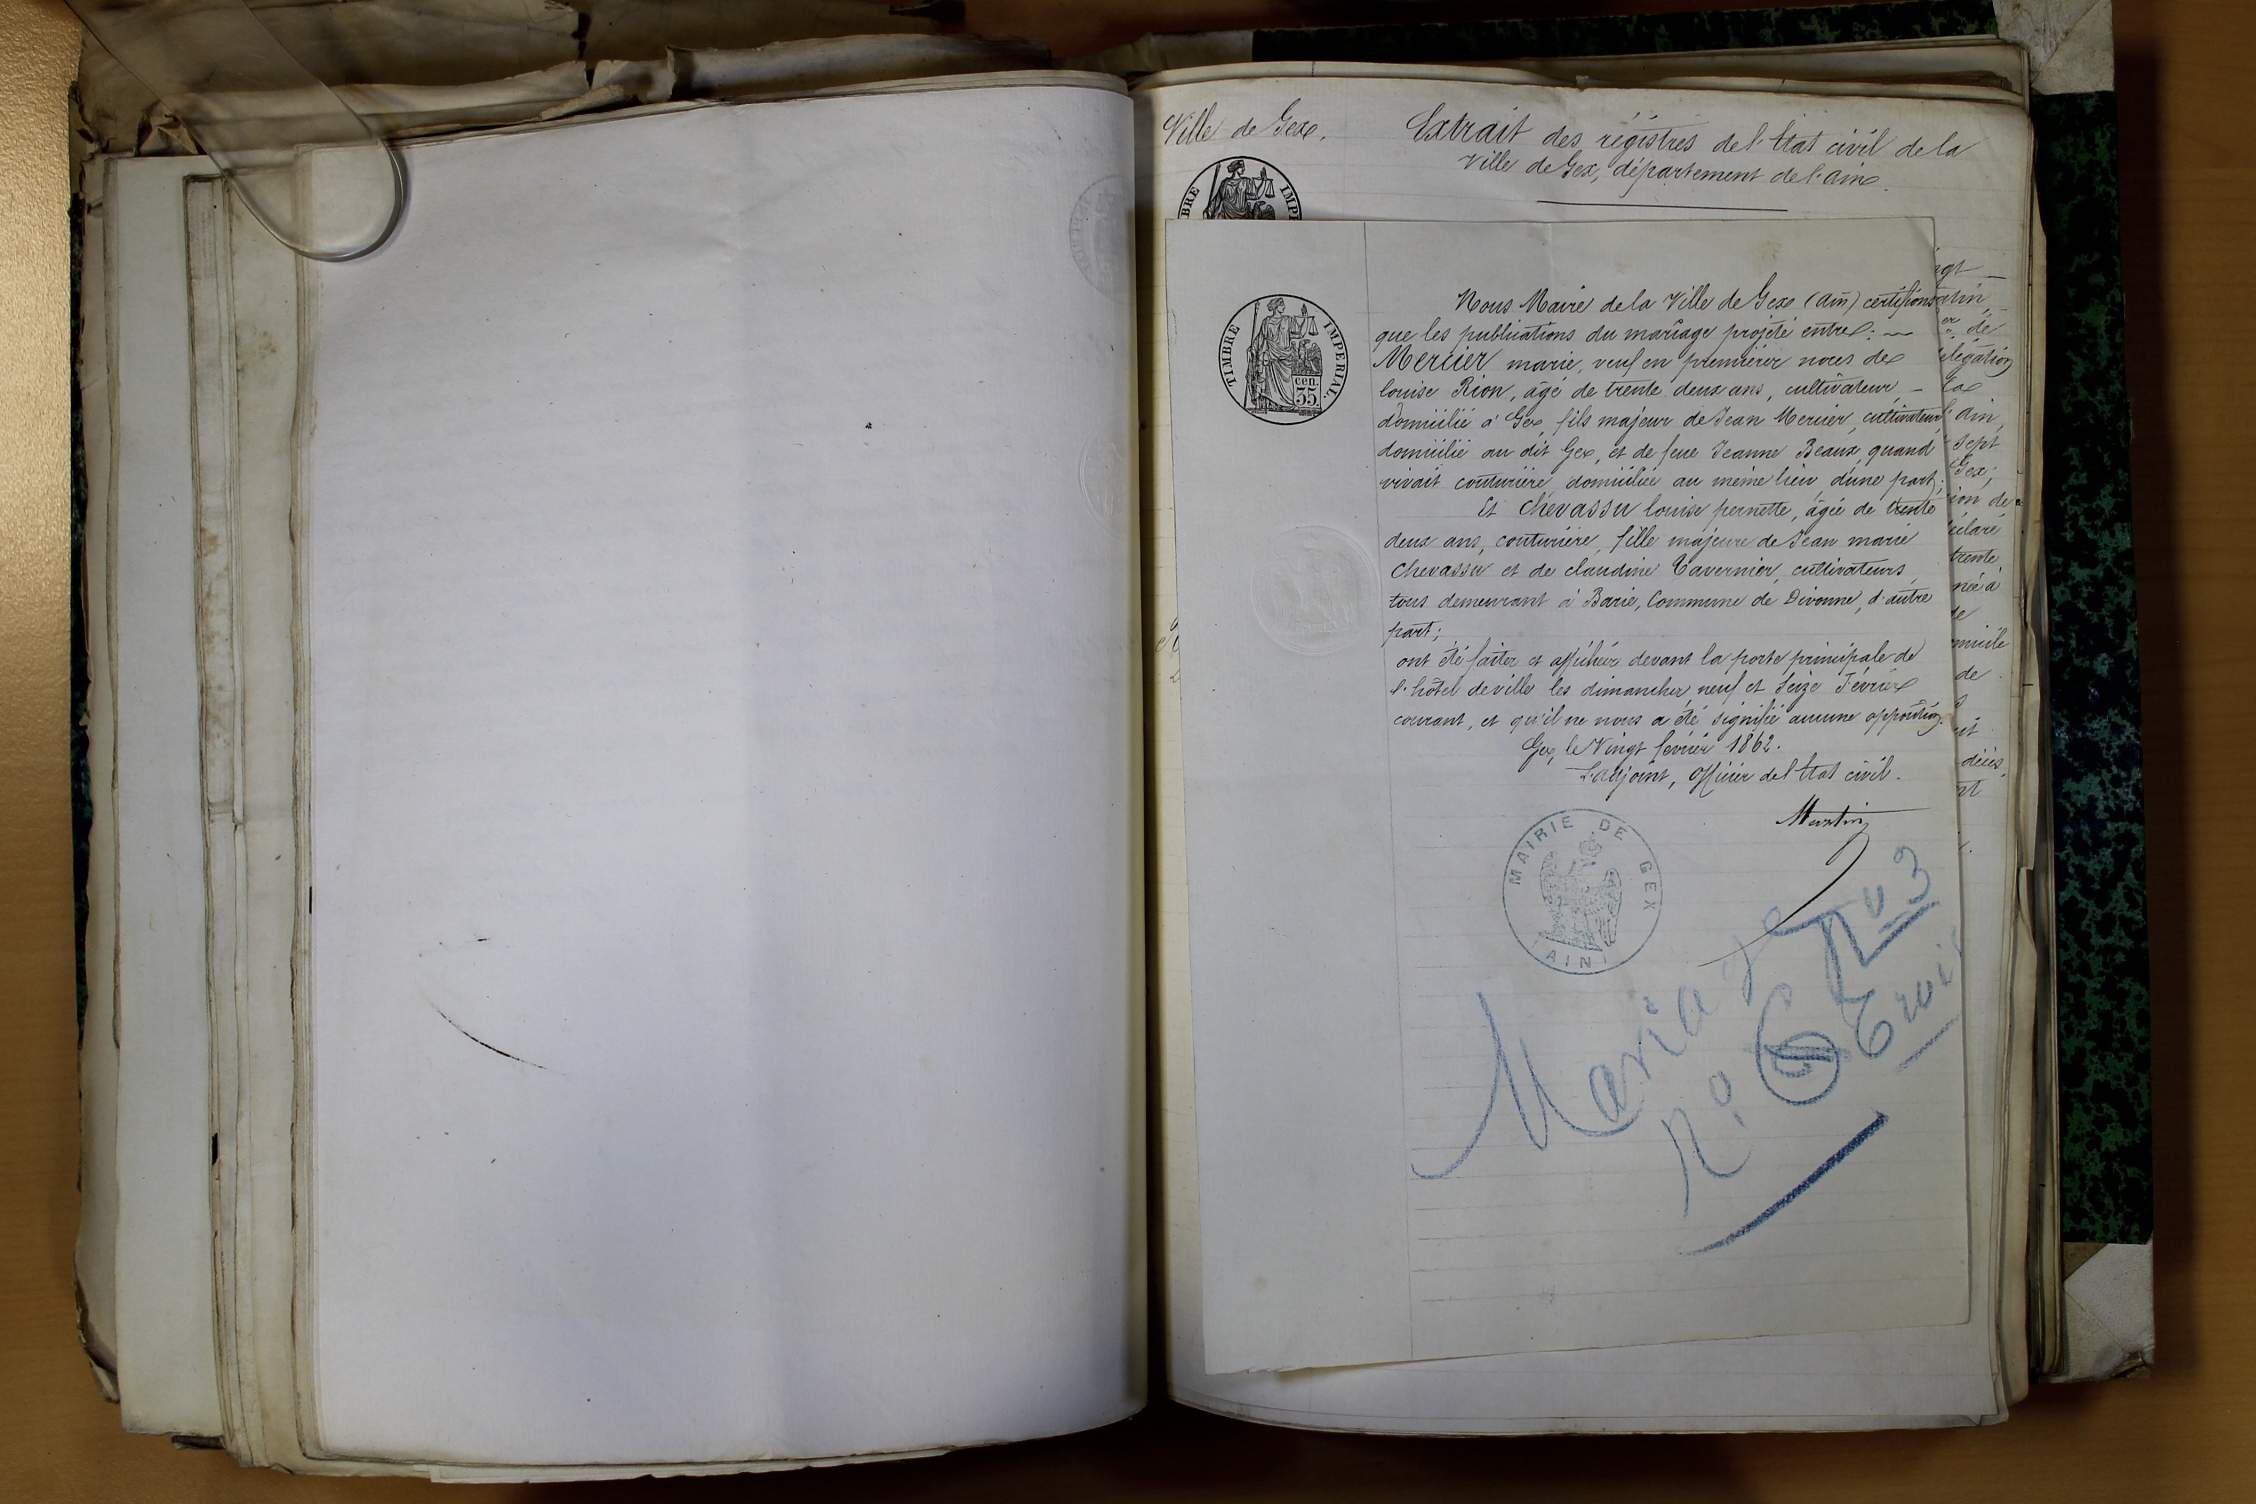 Ville de Gex.
Extrait des régistres de l'Etat civil de la
Ville de Gex, département de l'Ain.
TIMBRE IMPERIAL.
cen.
35.
Nous Maire de la Ville de Gex (Ain) certifions
que les publications du mariage projeté entre :
Mercier marie, veuf en premières noces de
louise Rion, âgé de trente deux ans, cultivateur, —
domicilié à Gex, fils majeur de Jean Mercier, cultivateur,
domicilié au dit Gex, et de feue Jeanne Beaux, quand
vivait couturière, domiciliée au même lieu, d'une part;
Et Chevassu louise pernette, âgée de trente
deux ans, couturière, fille majeure de Jean marie
Chevassu et de claudine Tavernier, cultivateurs,
tous demeurant à Barie, Commune de Divonne, d'autre
part;
ont été faites et affichées devant la porte principale de
l'hôtel de ville les dimanches, neuf et seize Février
courant, et qu'il ne nous a été signifié aucune opposition.
Gex, le Vingt février 1862.
L'adjoint, Officier de l'Etat civil.
Martin
MAIRIE DE GEX
AIN
Mariage
No 3
No 6
Trois
Ain,
sept
Gex;
ion de
trente
de